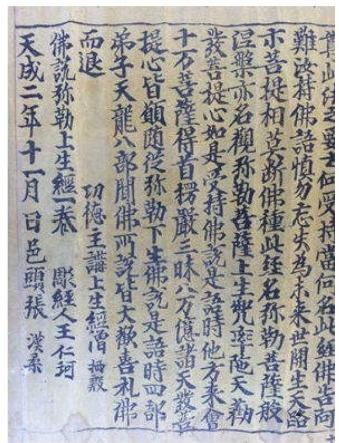 尊此法之要云何受持當何名此經佛告阿
難汝持佛語慎勿忘失為未來世開生天路
示菩提相莫斷佛種此経名弥勒菩薩般
涅槃亦名觀弥勒菩薩上生兜率陁天勸
發菩提心如是受持佛說是語時他方來會
十万菩薩得首楞嚴三昧八万億諸天發菩
提心皆願随從弥勒下生佛說是語時四部
弟子天龍八部聞佛所說皆大歡喜礼佛
而退
功德主講上生經僧 栖殷
佛說弥勒上生經一卷 彫經人王仁珂
天成二年十一月 日邑頭張 漢柔